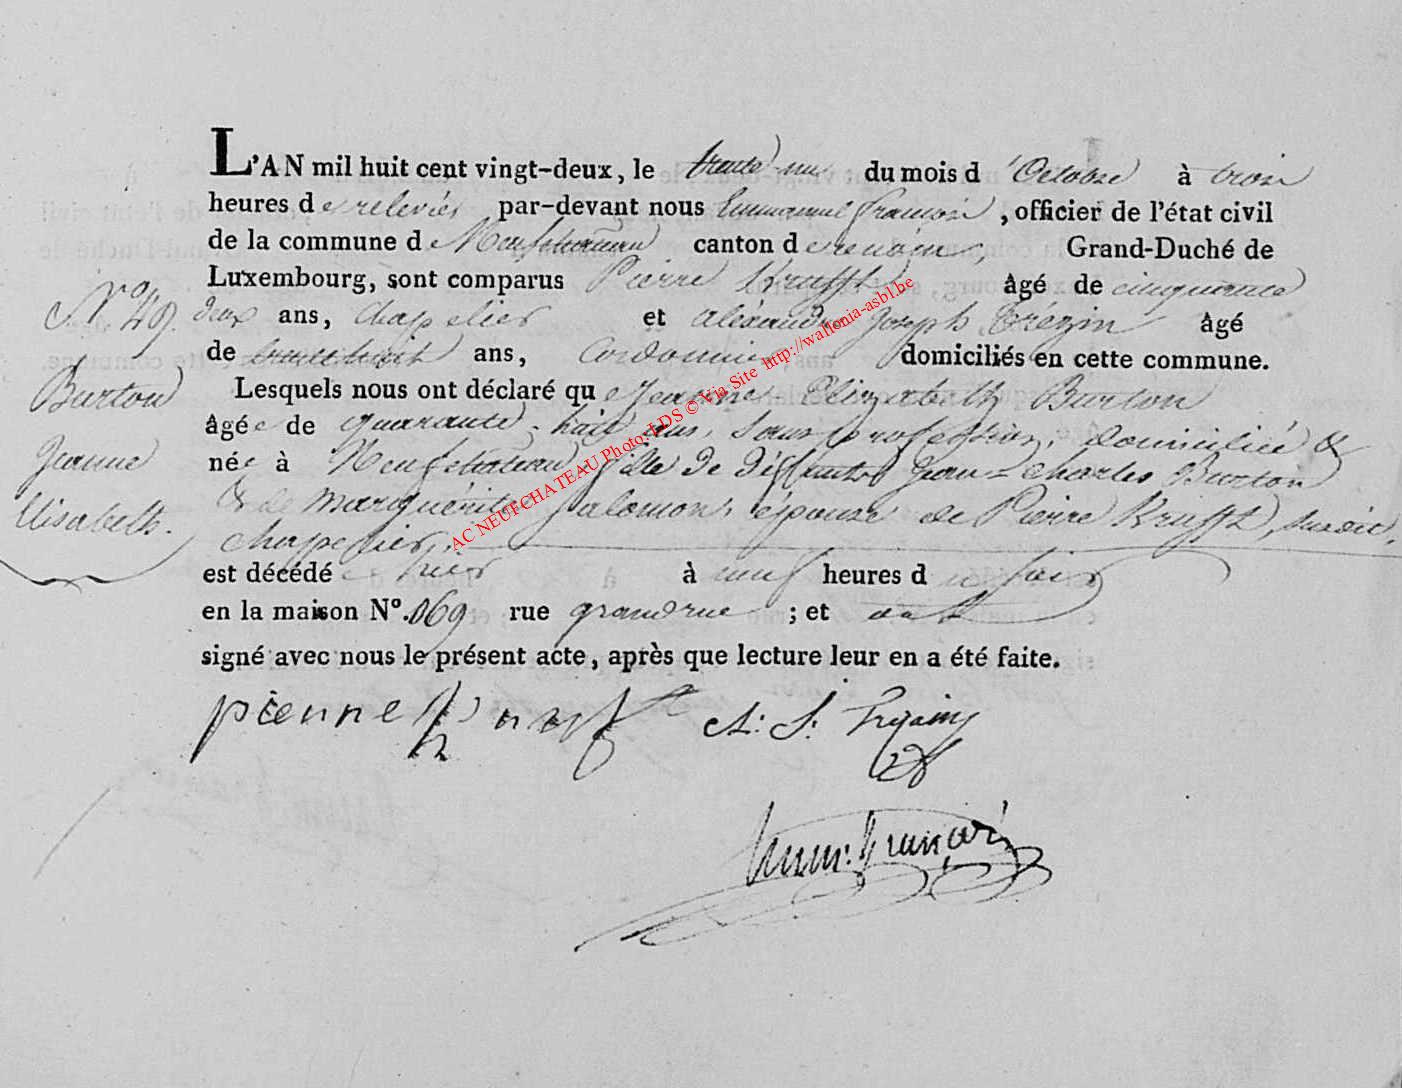 L'AN mil huit cent vingt-deux, le trente-un du mois d'Octobre à trois
heures de relevées par-devant nous Emmanuel françois, officier de l'état civil
de la commune de Neufchateau canton de Grand-Duché de
Luxembourg, sont comparus Pierre Krufft âgé de cinquante
N° 49. deux ans, chapelier et aléxandre Joseph Trégin âgé
de trente huit ans, Cordonnier domiciliés en cette commune.
Burton
Jeanne
Elisabeth.
Lesquels nous ont déclaré que Jeanne-Elizabeth Burton
âgée de quarante-huit ans, sans profession, domiciliée &
née à Neufchateau, fille de défunts Jean-Charles Burton
& de Marguérite Jalomon, épouse de Pierre Krufft, susdit,
chapelier,
est décédée hier à neuf heures du soir
en la maison N°. 069 rue grand rue ; et ont
signé avec nous le présent acte, après que lecture leur en a été faite.
pienne
A: J:
Emm. françois
AC NEUFCHATEAU Photo: LDS © Via Site http://wallonia-asbl.be